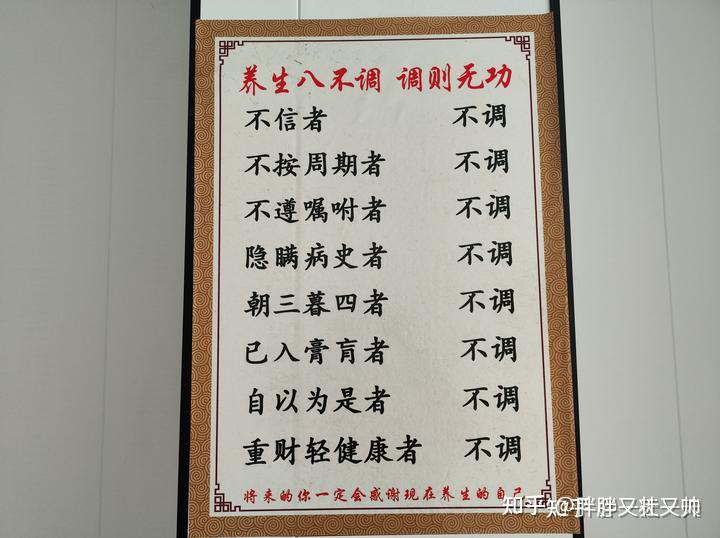 养生八不调 调则无功
不信者 不调
不按周期者 不调
不遵嘱咐者 不调
隐瞒病史者 不调
朝三暮四者 不调
已入膏肓者 不调
自以为是者 不调
重财轻健康者 不调
将来的你一定会感谢现在养生的自己
知乎 @胖胖又壮又帅